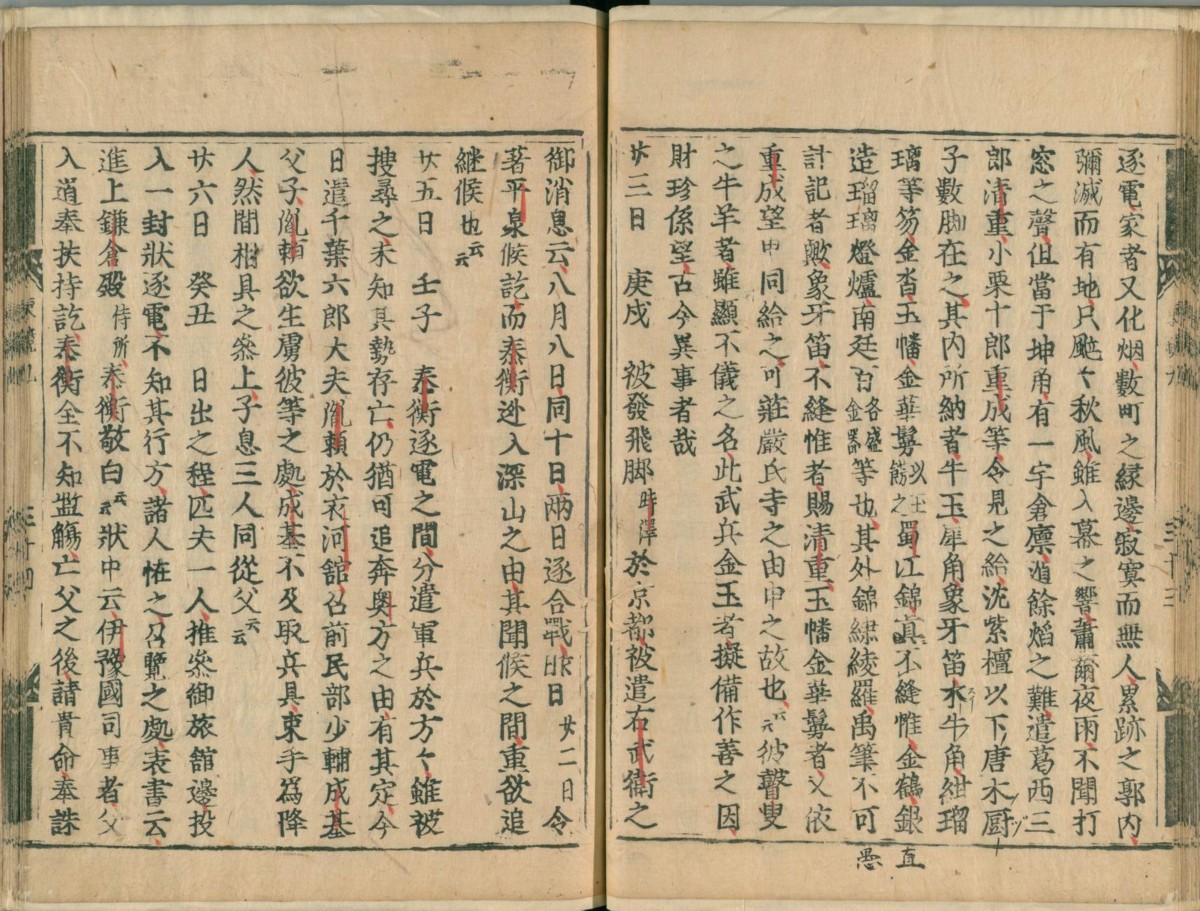 逐電家者又化烟數町之縁邊寂寞而無人累跡之郭内
彌滅而有地只颺々秋風雖入幕之響蕭爾夜雨不聞打
窓之聲但當于坤角有一宇倉廩遁餘焰之難遣葛西三
郎清重小栗十郎重成等令見之給沈紫檀以下唐木厨
子數脚在之其内所納者牛玉犀角象牙笛水牛角紺瑠
璃等笏金沓玉幡金華鬘以玉餝之蜀江錦直不縫惟金鶴銀
造瑠璃燈爐南廷百各盛金器等也其外錦繍綾羅禹筆不可
計記者歟象牙笛不縫惟者賜清重玉幡金華鬘者又依
重成望申同給之可莊嚴氏寺之由申之故也云云彼瞽叟
之牛羊者雖顯不儀之名此武兵金玉者擬備作善之因
財珍係望古今異事者哉
廿三日 庚戌 被發飛脚時澤於京都被遣右武衛之
直
愚
御消息云八月八日同十日兩日遂合戰昨日廿二日令
著平泉候訖而泰衡迯入深山之由其聞候之間重欲追
継候也云云
廿五日 壬子 泰衡逐電之間分遣軍兵於方々雖被
搜尋之未知其勢存亡仍猶可追奔奥方之由有其定今
日遣千葉六郎大夫胤頼於衣河舘召前民部少輔成基
父子胤頼欲生虜彼等之處成基不及取兵具束手爲降
人然間相具之參上子息三人同從父云云
廿六日 癸丑 日出之程匹夫一人推參御旅舘邊投
入一封狀逐電不知其行方諸人恠之召覽之處表書云
進上鎌倉殿侍所泰衡敬白云云狀中云伊豫國司事者父
入道奉扶持訖泰衡全不知濫觴亡父之後請貴命奉誅